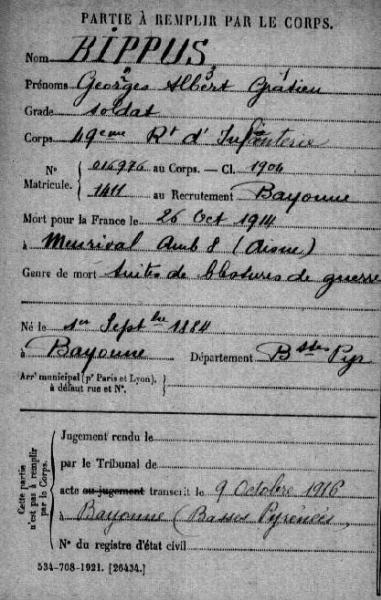 PARTIE À REMPLIR PAR LE CORPS.
Nom RIPPUS
Prénoms Georges Albert Gratien
2 3 1
Grade soldat
Corps 49eme Rt d'Infanterie
N° 016976 au Corps. — Cl. 1904
Matricule. 1411 au Recrutement Bayonne
Mort pour la France le 26 Oct 1914
à Meurival Amb 8 (Aisne)
Genre de mort suites de blessures de guerre
Né le 1er Septbre 1884
à Bayonne Département Bsses Pyr
Arrt municipal (pr Paris et Lyon),
à défaut rue et N°.
Cette partie
n'est pas à remplir
par le Corps.
Jugement rendu le
par le Tribunal de
acte ou jugement transcrit le 9 Octobre 1916
à Bayonne (Basses Pyrénées)
N° du registre d'état civil
534-708-1921. [26434.]